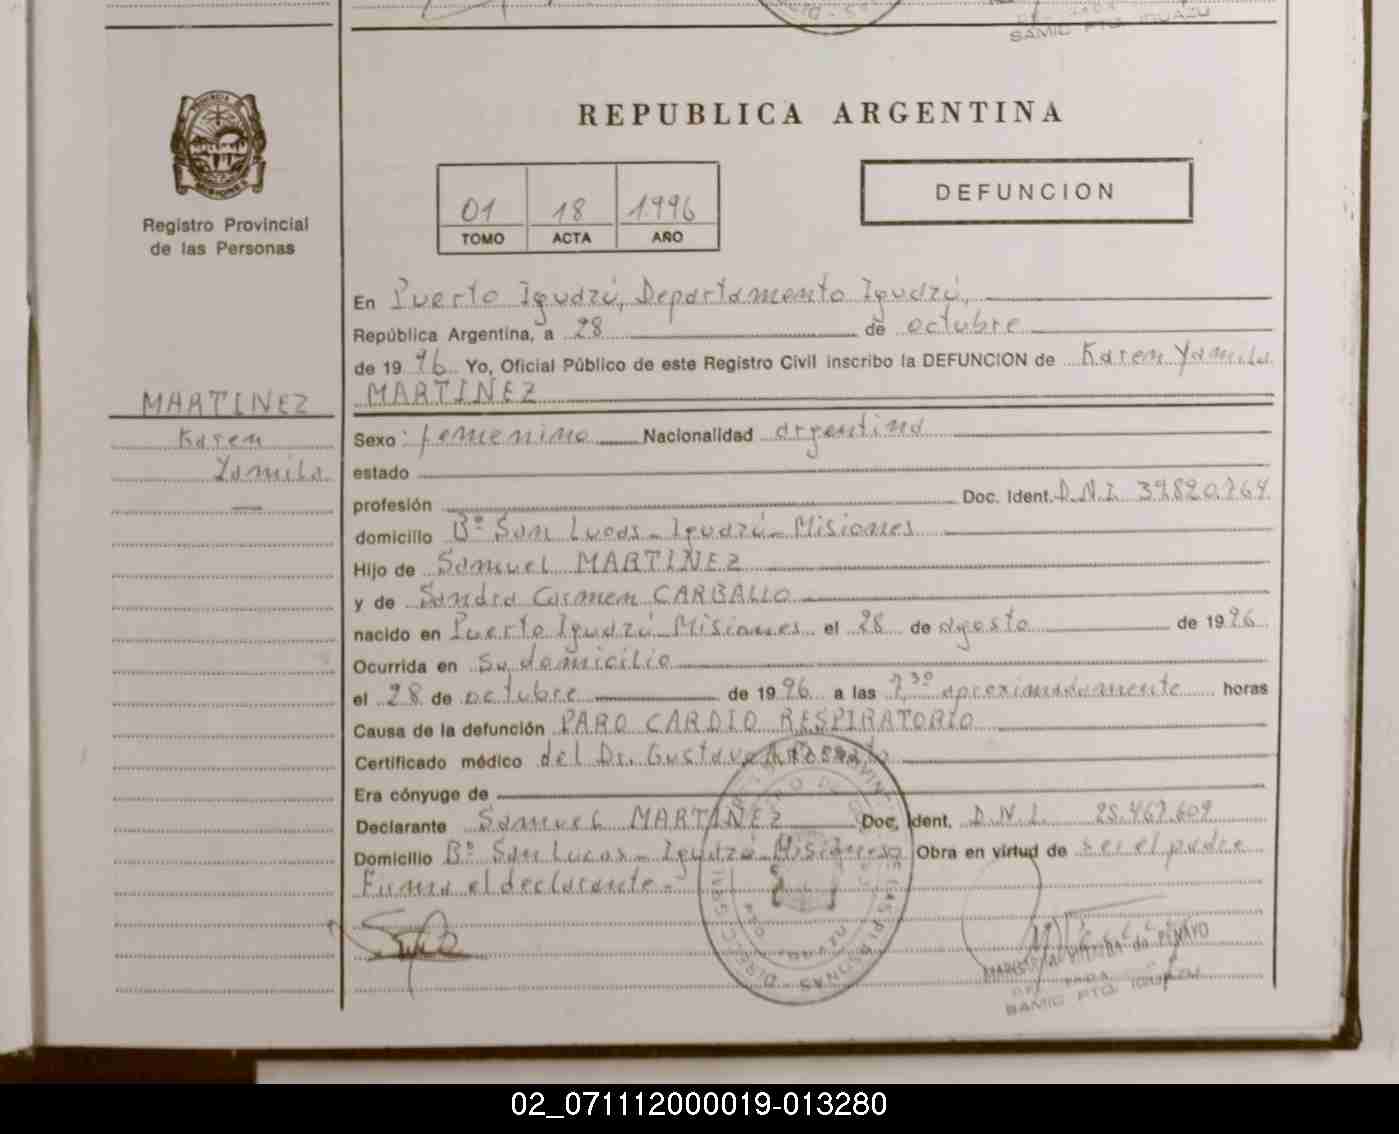 SAMIC PTO. IGUAZU
REPUBLICA ARGENTINA
Registro Provincial
de las Personas
01 18 1996
TOMO ACTA AÑO
DEFUNCION
En Puerto Iguazú, Departamento Iguazú,
República Argentina, a 28 de octubre
de 1996 Yo, Oficial Público de este Registro Civil inscribo la DEFUNCION de Karen Yamila
MARTINEZ
MARTINEZ
Karen
Yamila
Sexo: femenino Nacionalidad argentina
estado
profesión Doc. Ident. D.N.I. 39.820.764
domicilio Bº San Lucas - Iguazú - Misiones
Hijo de Samuel MARTINEZ
y de Sandra Carmen CARBALLO
nacido en Puerto Iguazú - Misiones el 28 de agosto de 1996
Ocurrida en su domicilio
el 28 de octubre de 1996 a las 7,30 aproximadamente horas
Causa de la defunción PARO CARDIO RESPIRATORIO
Certificado médico del Dr. Gustavo
Era cónyuge de
Declarante Samuel MARTINEZ Doc. Ident. D.N.I. 25.467.609
Domicilio Bº San Lucas - Iguazú - Misiones Obra en virtud de ser el padre
Firma el declarante.
SAMIC PTO. IGUAZU
02_071112000019-013280